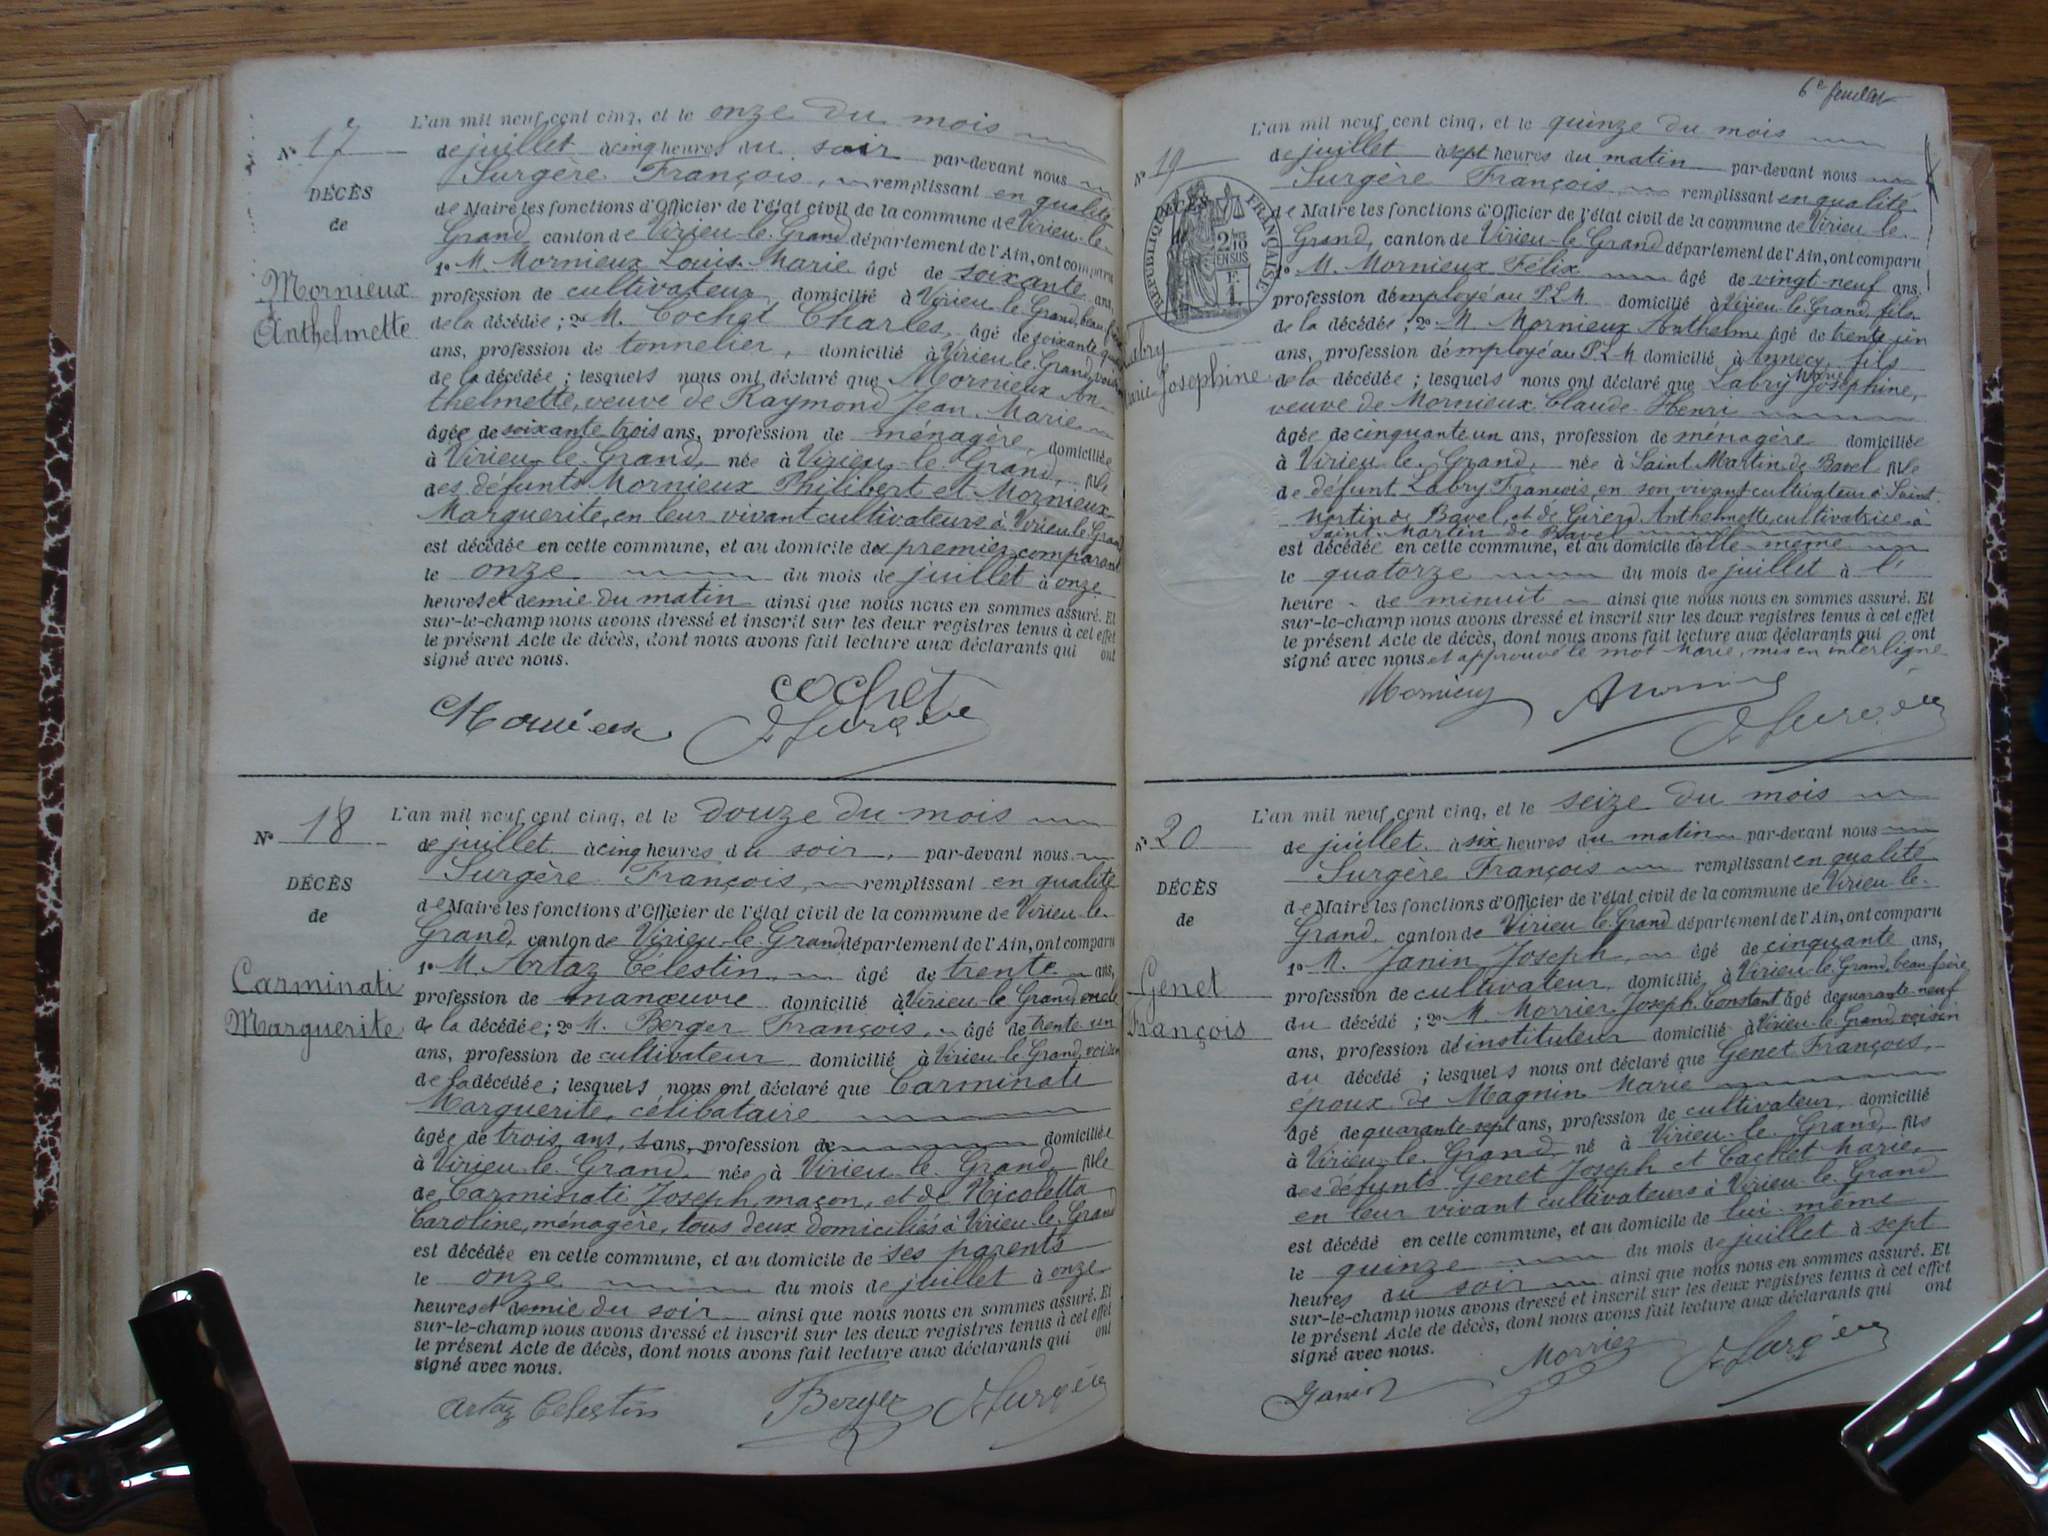 Nº 17
DÉCÈS
de
Mornieux
Anthelmette
L'an mil neuf cent cinq, et le onze du mois
de juillet à cinq heures du soir par-devant nous
Surgère François, remplissant en qualité
de Maire les fonctions d'Officier de l'état civil de la commune de Virieu-le-
Grand, canton de Virieu-le-Grand département de l'Ain, ont comparu
1º M. Mornieux Louis-Marie âgé de soixante ans,
profession de cultivateur, domicilié à Virieu-le-Grand, beau-frère
de la décédée; 2º M. Cochet Charles, âgé de soixante
ans, profession de tonnelier, domicilié à Virieu-le-Grand, voisin
de la décédée; lesquels nous ont déclaré que Mornieux An-
thelmette, veuve de Raymond Jean-Marie
âgée de soixante trois ans, profession de ménagère, domiciliée
à Virieu-le-Grand, née à Virieu-le-Grand, fille
des défunts Mornieux Philibert et Mornieux
Marguerite, en leur vivant cultivateurs à Virieu-le-Grand
est décédée en cette commune, et au domicile du premier comparant
le onze du mois de juillet à onze
heures et demie du matin ainsi que nous nous en sommes assuré. Et
sur-le-champ nous avons dressé et inscrit sur les deux registres tenus à cet effet
le présent Acte de décès, dont nous avons fait lecture aux déclarants qui ont
signé avec nous.
cochet
Mornieux Surgère
Nº 18
DÉCÈS
de
Carminati
Marguerite
L'an mil neuf cent cinq, et le douze du mois
de juillet à cinq heures du soir, par-devant nous
Surgère François, remplissant en qualité
de Maire les fonctions d'Officier de l'état civil de la commune de Virieu-le-
Grand, canton de Virieu-le-Grand département de l'Ain, ont comparu
1º M. Artaz Célestin, âgé de trente ans,
profession de manœuvre domicilié à Virieu-le-Grand, oncle
de la décédée; 2º M. Berger François, âgé de trente un
ans, profession de cultivateur domicilié à Virieu-le-Grand, voisin
de la décédée; lesquels nous ont déclaré que Carminati
Marguerite, célibataire
âgée de trois ans, sans, profession de domiciliée
à Virieu-le-Grand, née à Virieu-le-Grand, fille
de Carminati Joseph, maçon, et de Nicoletta
Caroline, ménagère, tous deux domiciliés à Virieu-le-Grand
est décédée en cette commune, et au domicile de ses parents
le onze du mois de juillet à onze
heures et demie du soir ainsi que nous nous en sommes assuré. Et
sur-le-champ nous avons dressé et inscrit sur les deux registres tenus à cet effet
le présent Acte de décès, dont nous avons fait lecture aux déclarants qui ont
signé avec nous.
Artaz Celestin Berger Surgère
6e feuillet
Nº 19
DÉCÈS
RÉPUBLIQUE FRANÇAISE
2/10 EN SUS
F. 1.
Labry
Marie Josephine
L'an mil neuf cent cinq, et le quinze du mois
de juillet à sept heures du matin par-devant nous
Surgère François remplissant en qualité
de Maire les fonctions d'Officier de l'état civil de la commune de Virieu-le-
Grand, canton de Virieu-le-Grand département de l'Ain, ont comparu
1º M. Mornieux Félix âgé de vingt-neuf ans
profession d'employé au P.L.M. domicilié à Virieu-le-Grand, fils
de la décédée; 2º M. Mornieux Anthelme âgé de trente un
ans, profession d'employé au P.L.M domicilié à Annecy, fils
de la décédée; lesquels nous ont déclaré que Labry Marie Joséphine,
veuve de Mornieux Claude-Henri
âgée de cinquante un ans, profession de ménagère domiciliée
à Virieu-le-Grand, née à Saint-Martin-de-Bavel fille
de défunt Labry François, en son vivant cultivateur à Saint-
Martin-de-Bavel, et de Girerd Anthelmette, cultivatrice à
Saint-Martin-de-Bavel
est décédée en cette commune, et au domicile d'elle-même
le quatorze du mois de juillet à l'
heure de minuit ainsi que nous nous en sommes assuré. Et
sur-le-champ nous avons dressé et inscrit sur les deux registres tenus à cet effet
le présent Acte de décès, dont nous avons fait lecture aux déclarants qui ont
signé avec nous et approuvé le mot Marie, mis en interligne
Mornieux Surgère
Nº 20
DÉCÈS
de
Genet
François
L'an mil neuf cent cinq, et le seize du mois
de juillet à six heures du matin par-devant nous
Surgère François remplissant en qualité
de Maire les fonctions d'Officier de l'état civil de la commune de Virieu-le-
Grand, canton de Virieu-le-Grand département de l'Ain, ont comparu
1º M. Janin Joseph, âgé de cinquante ans,
profession de cultivateur, domicilié à Virieu-le-Grand, beau-frère
du décédé; 2º M. Morrier Joseph Constant âgé de quarante-neuf
ans, profession d'instituteur domicilié à Virieu-le-Grand, voisin
du décédé; lesquels nous ont déclaré que Genet François,
époux de Magnin Marie
âgé de quarante-sept ans, profession de cultivateur, domicilié
à Virieu-le-Grand, né à Virieu-le-Grand, fils
des défunts Genet Joseph et Cachet Marie,
en leur vivant cultivateurs à Virieu-le-Grand
est décédé en cette commune, et au domicile de lui-même
le quinze du mois de juillet à sept
heures du soir ainsi que nous nous en sommes assuré. Et
sur-le-champ nous avons dressé et inscrit sur les deux registres tenus à cet effet
le présent Acte de décès, dont nous avons fait lecture aux déclarants qui ont
signé avec nous.
Janin Morrier Surgère